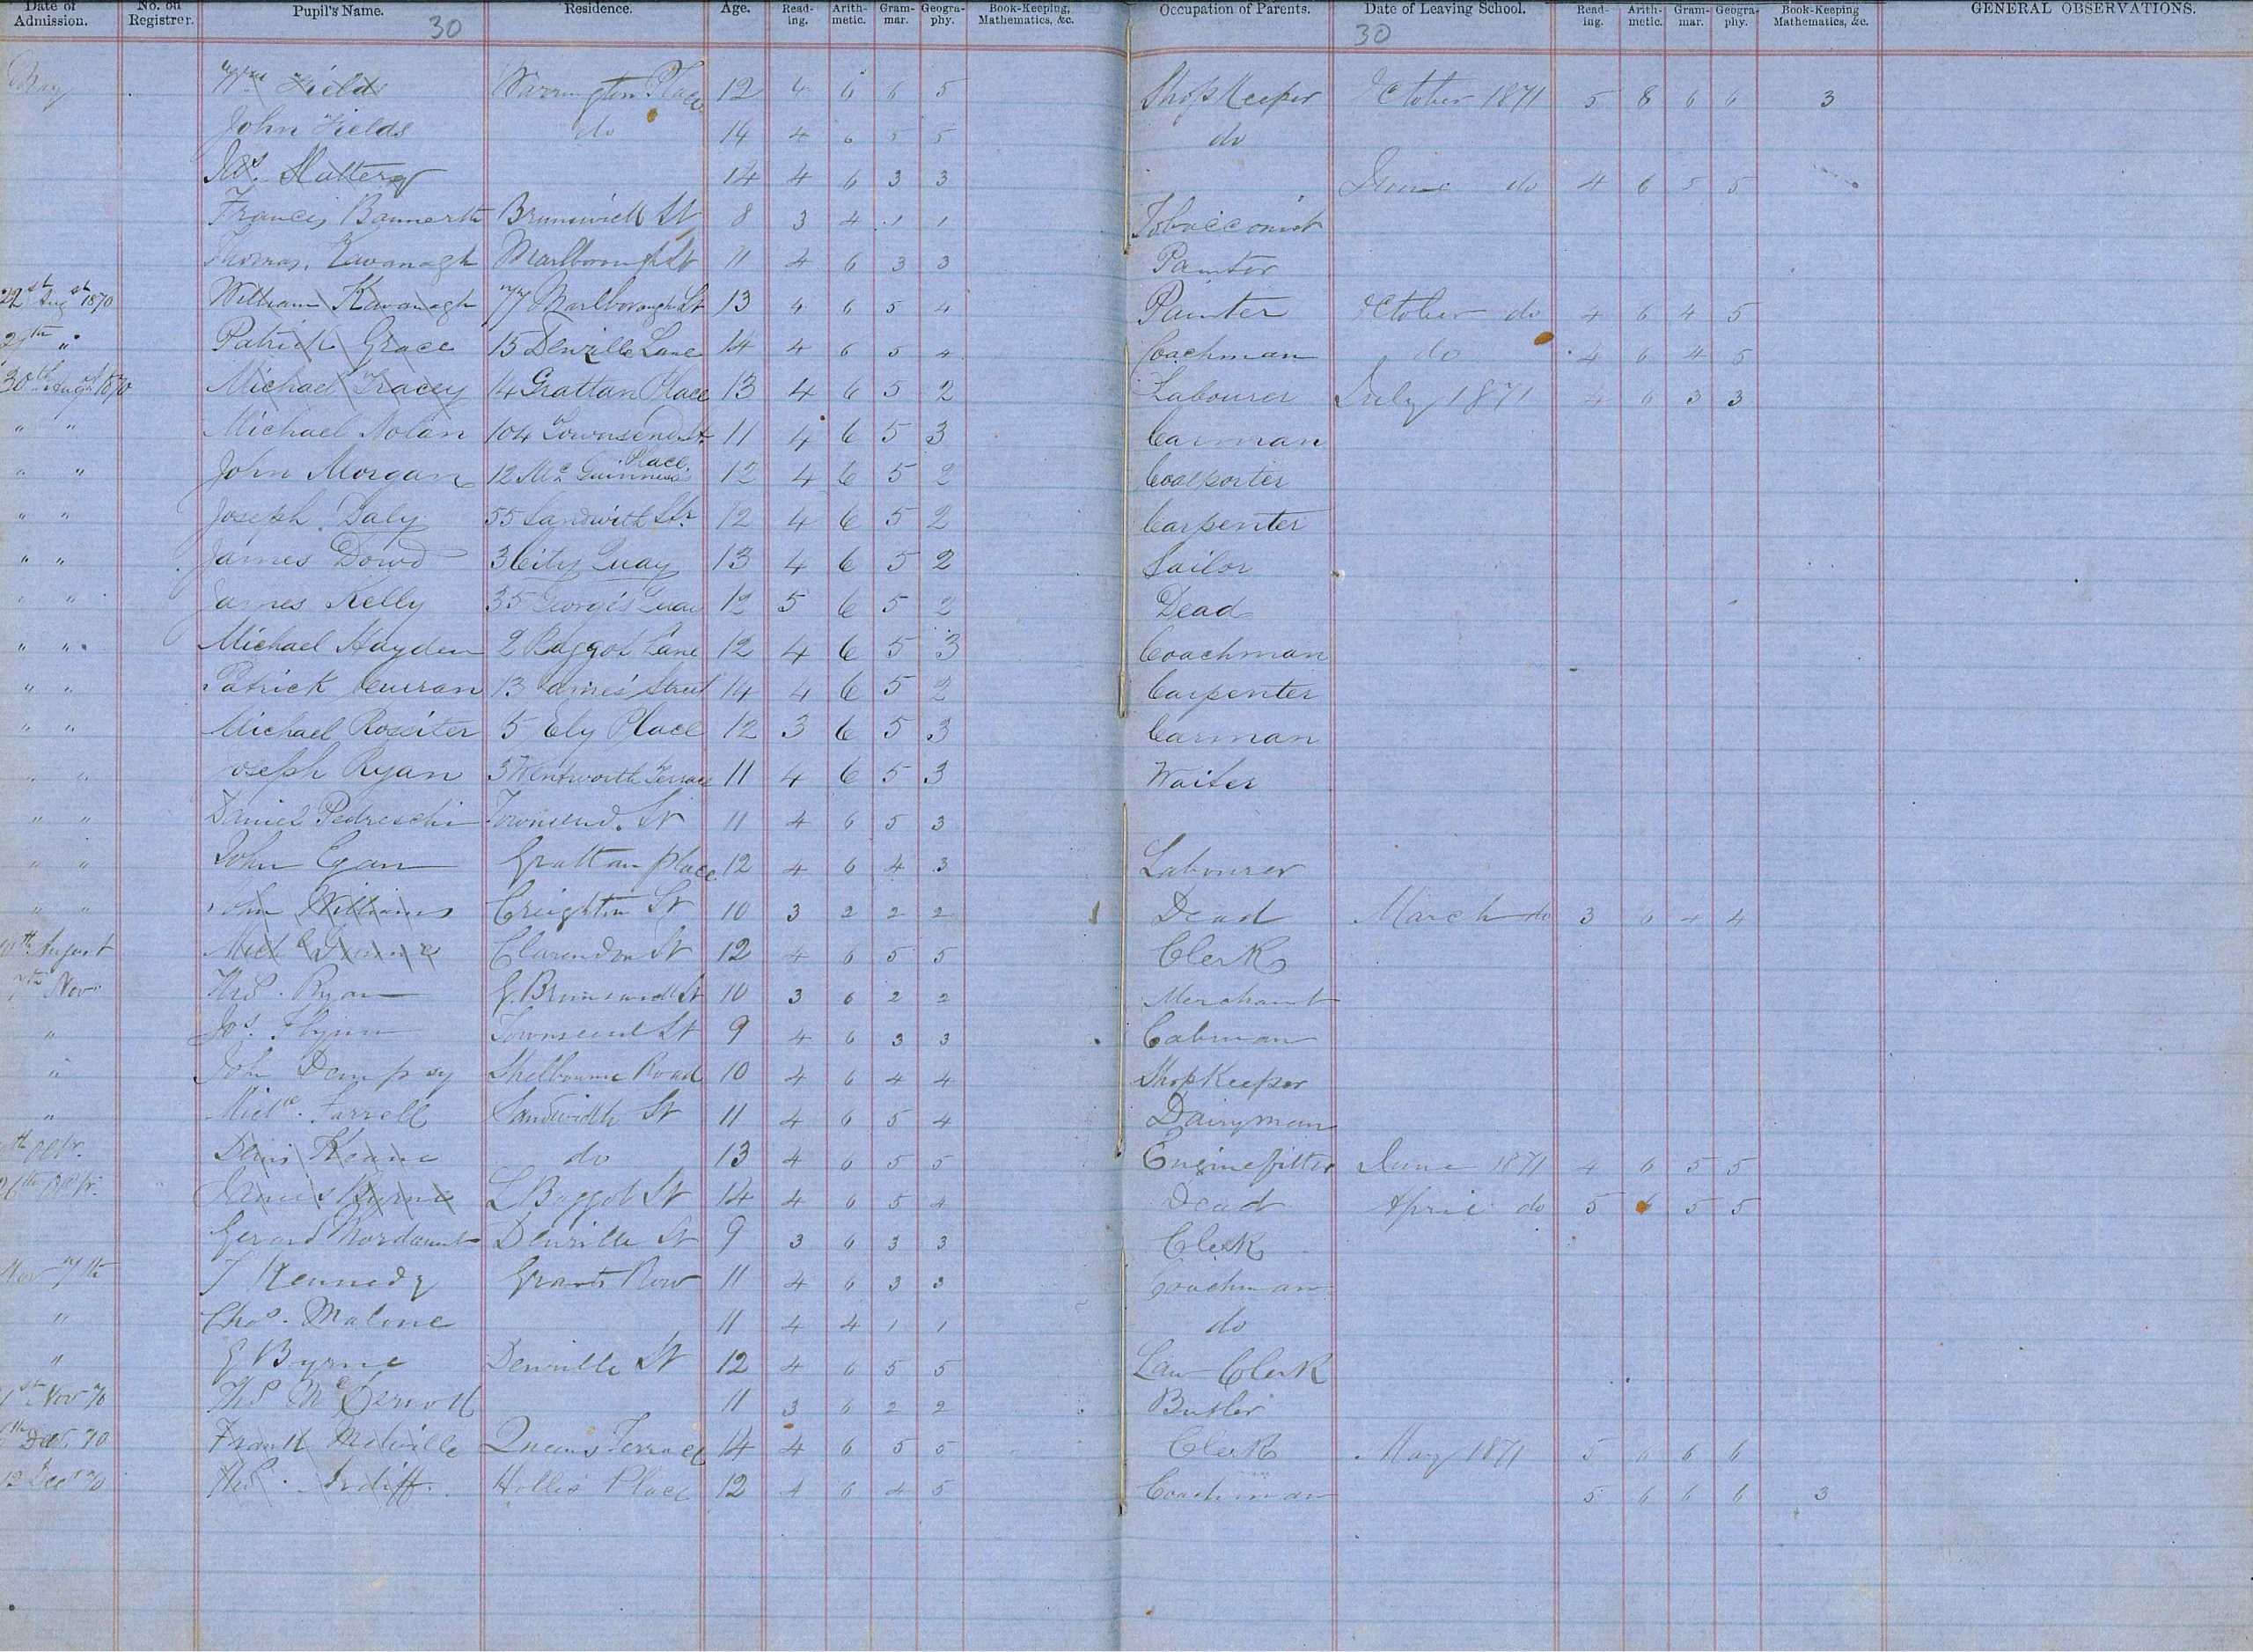 Date of Admission. No. on Registrer. Pupil's Name. Residence. Age. Read-ing. Arith-metic. Gram-mar. Geogra-phy. Book-Keeping, Mathematics, &c. Occupation of Parents. Date of Leaving School. Read-ing. Arith-metic. Gram-mar. Geogra-phy. Book-Keeping Mathematics, &c. GENERAL OBSERVATIONS.
30 30
May Wm Fields Warrington Place 12 4 6 6 5 ShopKeeper October 1871 5 8 6 6 3
John Fields do 14 4 6 5 5 do
Jas. Slattery 14 4 6 3 3 June do 4 6 5 5
Francis Bannerth Brunswick St 8 3 4 1 1 Tobacconist
Thomas Kavanagh Marlborough St 11 4 6 3 3 Painter
22st Augst 1870 William Kavanagh 77 Marlborough St 13 4 6 5 4 Painter October do 4 6 4 5
29th " Patrick Grace 15 Denzille Lane 14 4 6 5 4 Coachman do 4 6 4 5
30th Augst 1870 Michael Tracey 14 Grattan Place 13 4 6 5 2 Labourer July 1871 4 6 3 3
" " Michael Nolan 104 Townsend St. 11 4 6 5 3 Carman
" " John Morgan 12 Mc Guinness Place. 12 4 6 5 2 Coalporter
" " Joseph Daly 55 Sandwith Str. 12 4 6 5 2 Carpenter
" " James Dowd 3 City Quay 13 4 6 5 2 Sailor
" " James Kelly 35 George's Quay 12 5 6 5 2 Dead
" " Michael Hayden 2 Baggot Lane 12 4 6 5 3 Coachman
" " Patrick Curran 13 James' Street 14 4 6 5 2 Carpenter
" " Michael Rossiter 5 Ely Place 12 3 6 5 3 Carman
" " Joseph Ryan 3 Wentworth Terrace 11 4 6 5 3 Waiter
" " Daniel Pedreschi Townsend. St 11 4 6 5 3
" " John Egan Grattan place 12 4 6 4 3 Labourer
" " John Williams Creighton St 10 3 2 2 2 Dead March do 3 6 4 4
August Clarendon St 12 4 6 5 5 Clerk
7th Novr Thos. Ryan G. Brunswick St 10 3 6 2 2 Merchant
" Jos. Flynn Townsend St 9 4 6 3 3 Cabman
" John Dempsy Shelbourne Road 10 4 6 4 4 ShopKeeper
" Michl. Farrell Sandwidth St 11 4 6 5 4 Dairyman
Octr. Denis Keane do 13 4 6 5 5 Enginefitter June 1871 4 6 5 5
26th Octr. James Byrne L Baggot St 14 4 6 5 4 Dead April do 5 6 5 5
Gerard Mordaunt Denzille St 9 3 6 3 3 Clerk
Nov 7th J Kennedy Grants Row 11 4 6 3 3 Coachman
" Chas. Malone 11 4 4 1 1 do
" E Byrne Denzille St 12 4 6 5 5 Law Clerk
1st Nov 70 Thos McDermott 11 3 6 2 2 Butler
Decr. 70 Frank Melville Queens Terrace 14 4 6 5 5 Clerk May 1871 5 6 6 6
12 Decr 70 Thos. Ardiff. Holles Place 12 4 6 4 5 Coachman 5 6 6 6 3